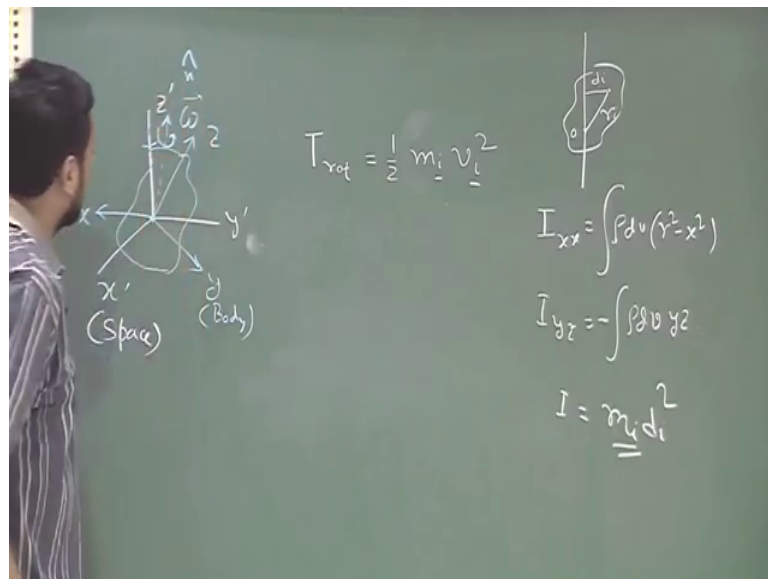 n̂
z' ω⃗
z
x
y'
x'
y
(Space)
(Body)
T_rot = 1/2 m_i v_i^2
d_i
r_i
o
I_xx = ∫ρdv(r^2-x^2)
I_yz = -∫ρdv yz
I = m_i d_i^2